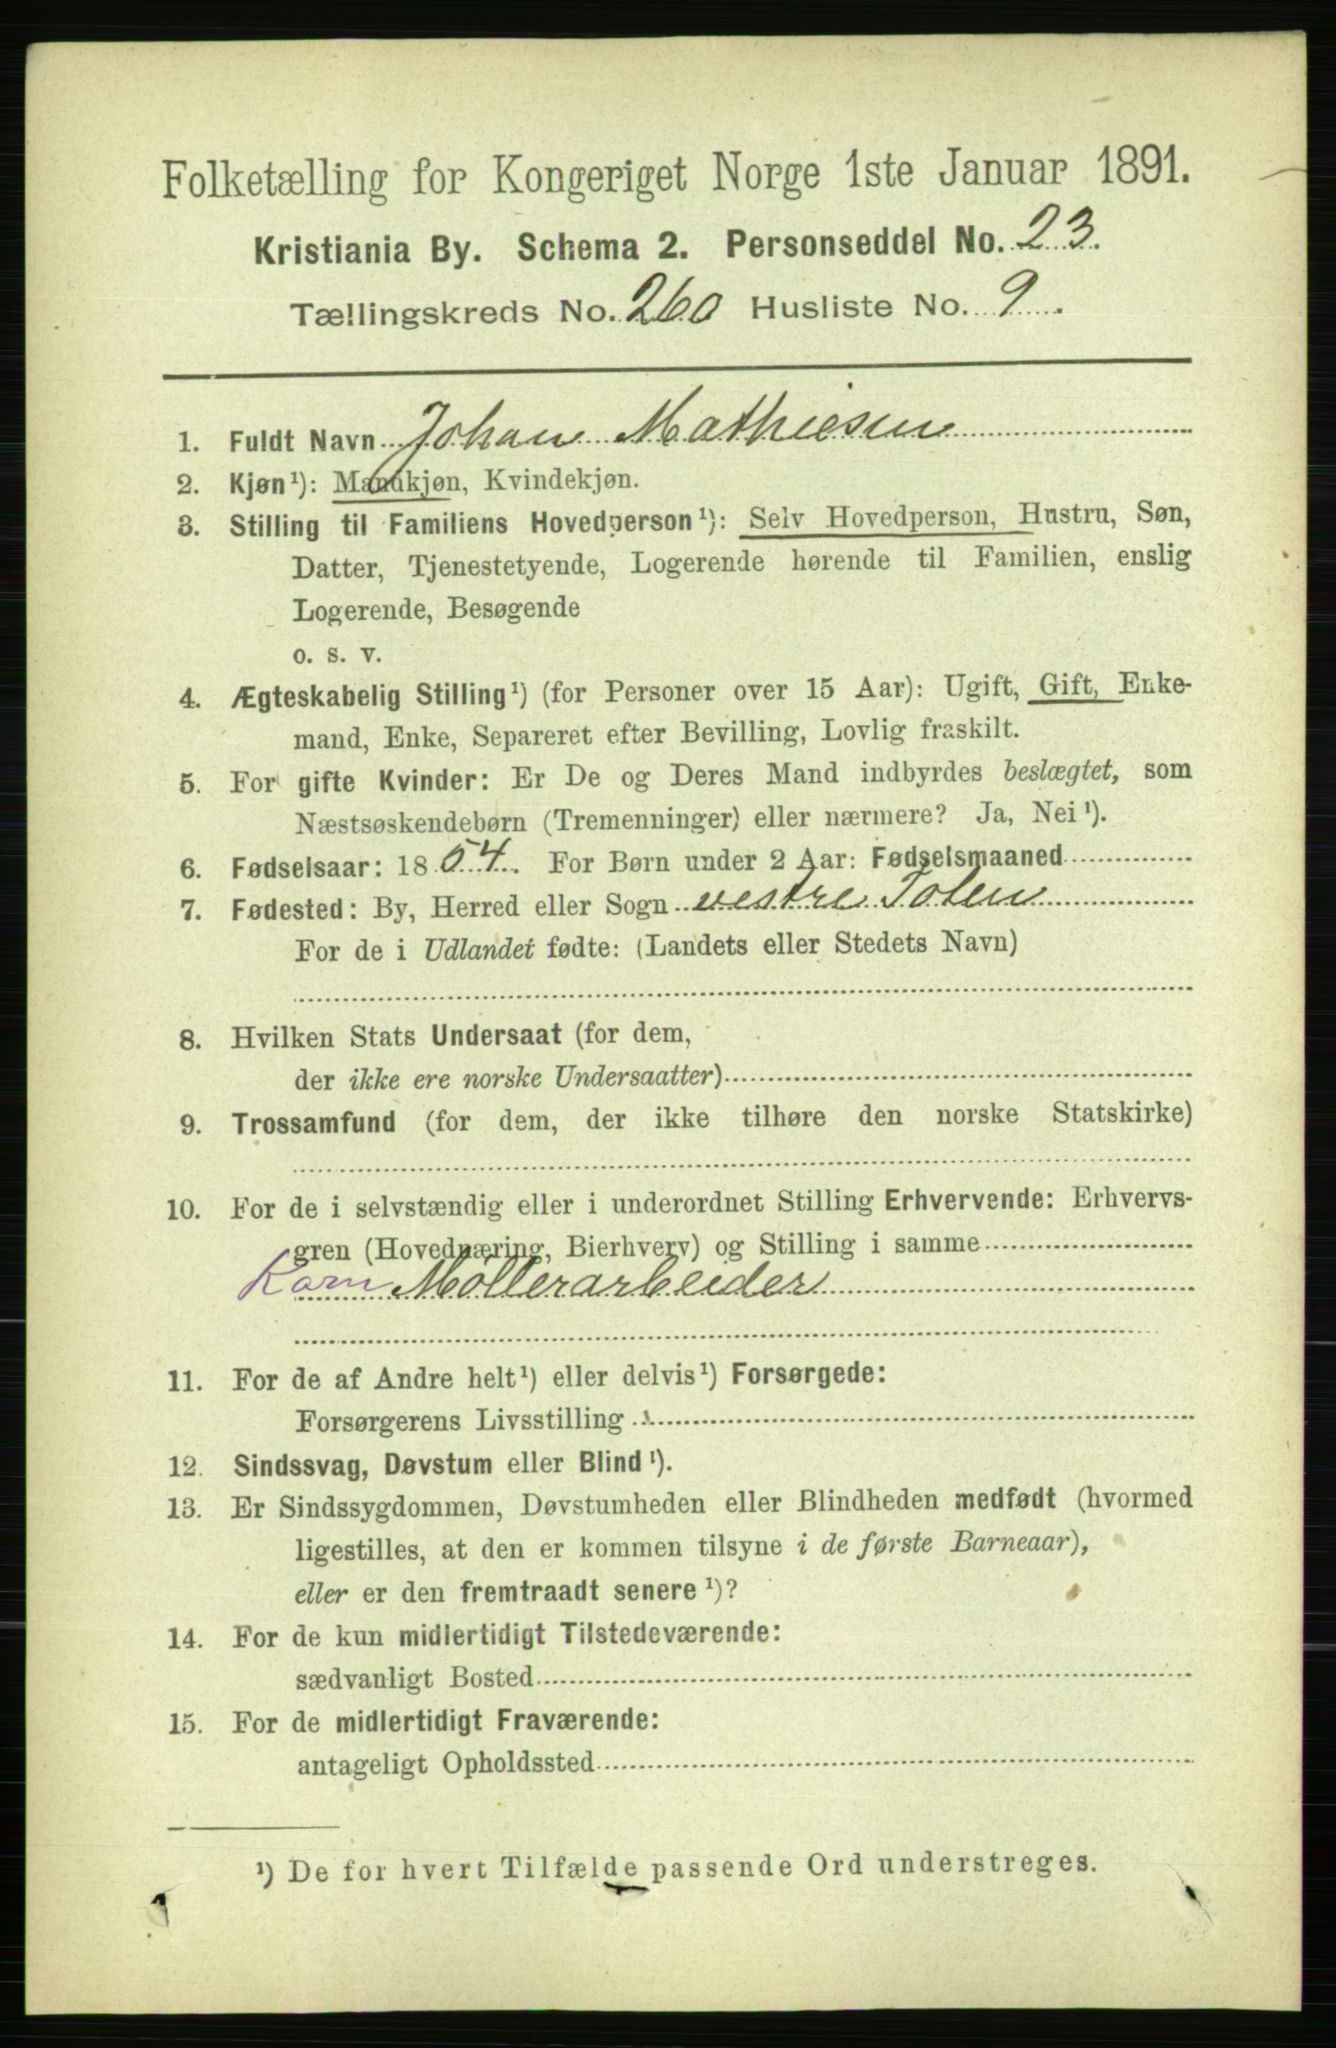 Folketælling for Kongeriget Norge 1ste Januar 1891.
Kristiania By. Schema 2. Personseddel No. 23.
Tællingskreds No. 260 Husliste No. 9.
1. Fuldt Navn Johan Mathiesen
2. Kjøn¹): Mandkjøn, Kvindekjøn.
3. Stilling til Familiens Hovedperson¹): Selv Hovedperson, Hustru, Søn,
Datter, Tjenestetyende, Logerende hørende til Familien, enslig
Logerende, Besøgende
o. s. v.
4. Ægteskabelig Stilling¹) (for Personer over 15 Aar): Ugift, Gift, Enke-
mand, Enke, Separeret efter Bevilling, Lovlig fraskilt.
5. For gifte Kvinder: Er De og Deres Mand indbyrdes beslægtet, som
Næstsøskendebørn (Tremenninger) eller nærmere? Ja, Nei¹).
6. Fødselsaar: 1854. For Børn under 2 Aar: Fødselsmaaned
7. Fødested: By, Herred eller Sogn vestre Toten
For de i Udlandet fødte: (Landets eller Stedets Navn)
8. Hvilken Stats Undersaat (for dem,
der ikke ere norske Undersaatter)
9. Trossamfund (for dem, der ikke tilhøre den norske Statskirke)
10. For de i selvstændig eller i underordnet Stilling Erhvervende: Erhvervs-
gren (Hovednæring, Bierhverv) og Stilling i samme
Korn Møllerarbeider
11. For de af Andre helt¹) eller delvis¹) Forsørgede:
Forsørgerens Livsstilling
12. Sindssvag, Døvstum eller Blind¹).
13. Er Sindssygdommen, Døvstumheden eller Blindheden medfødt (hvormed
ligestilles, at den er kommen tilsyne i de første Barneaar),
eller er den fremtraadt senere¹)?
14. For de kun midlertidigt Tilstedeværende:
sædvanligt Bosted
15. For de midlertidigt Fraværende:
antageligt Opholdssted
¹) De for hvert Tilfælde passende Ord understreges.